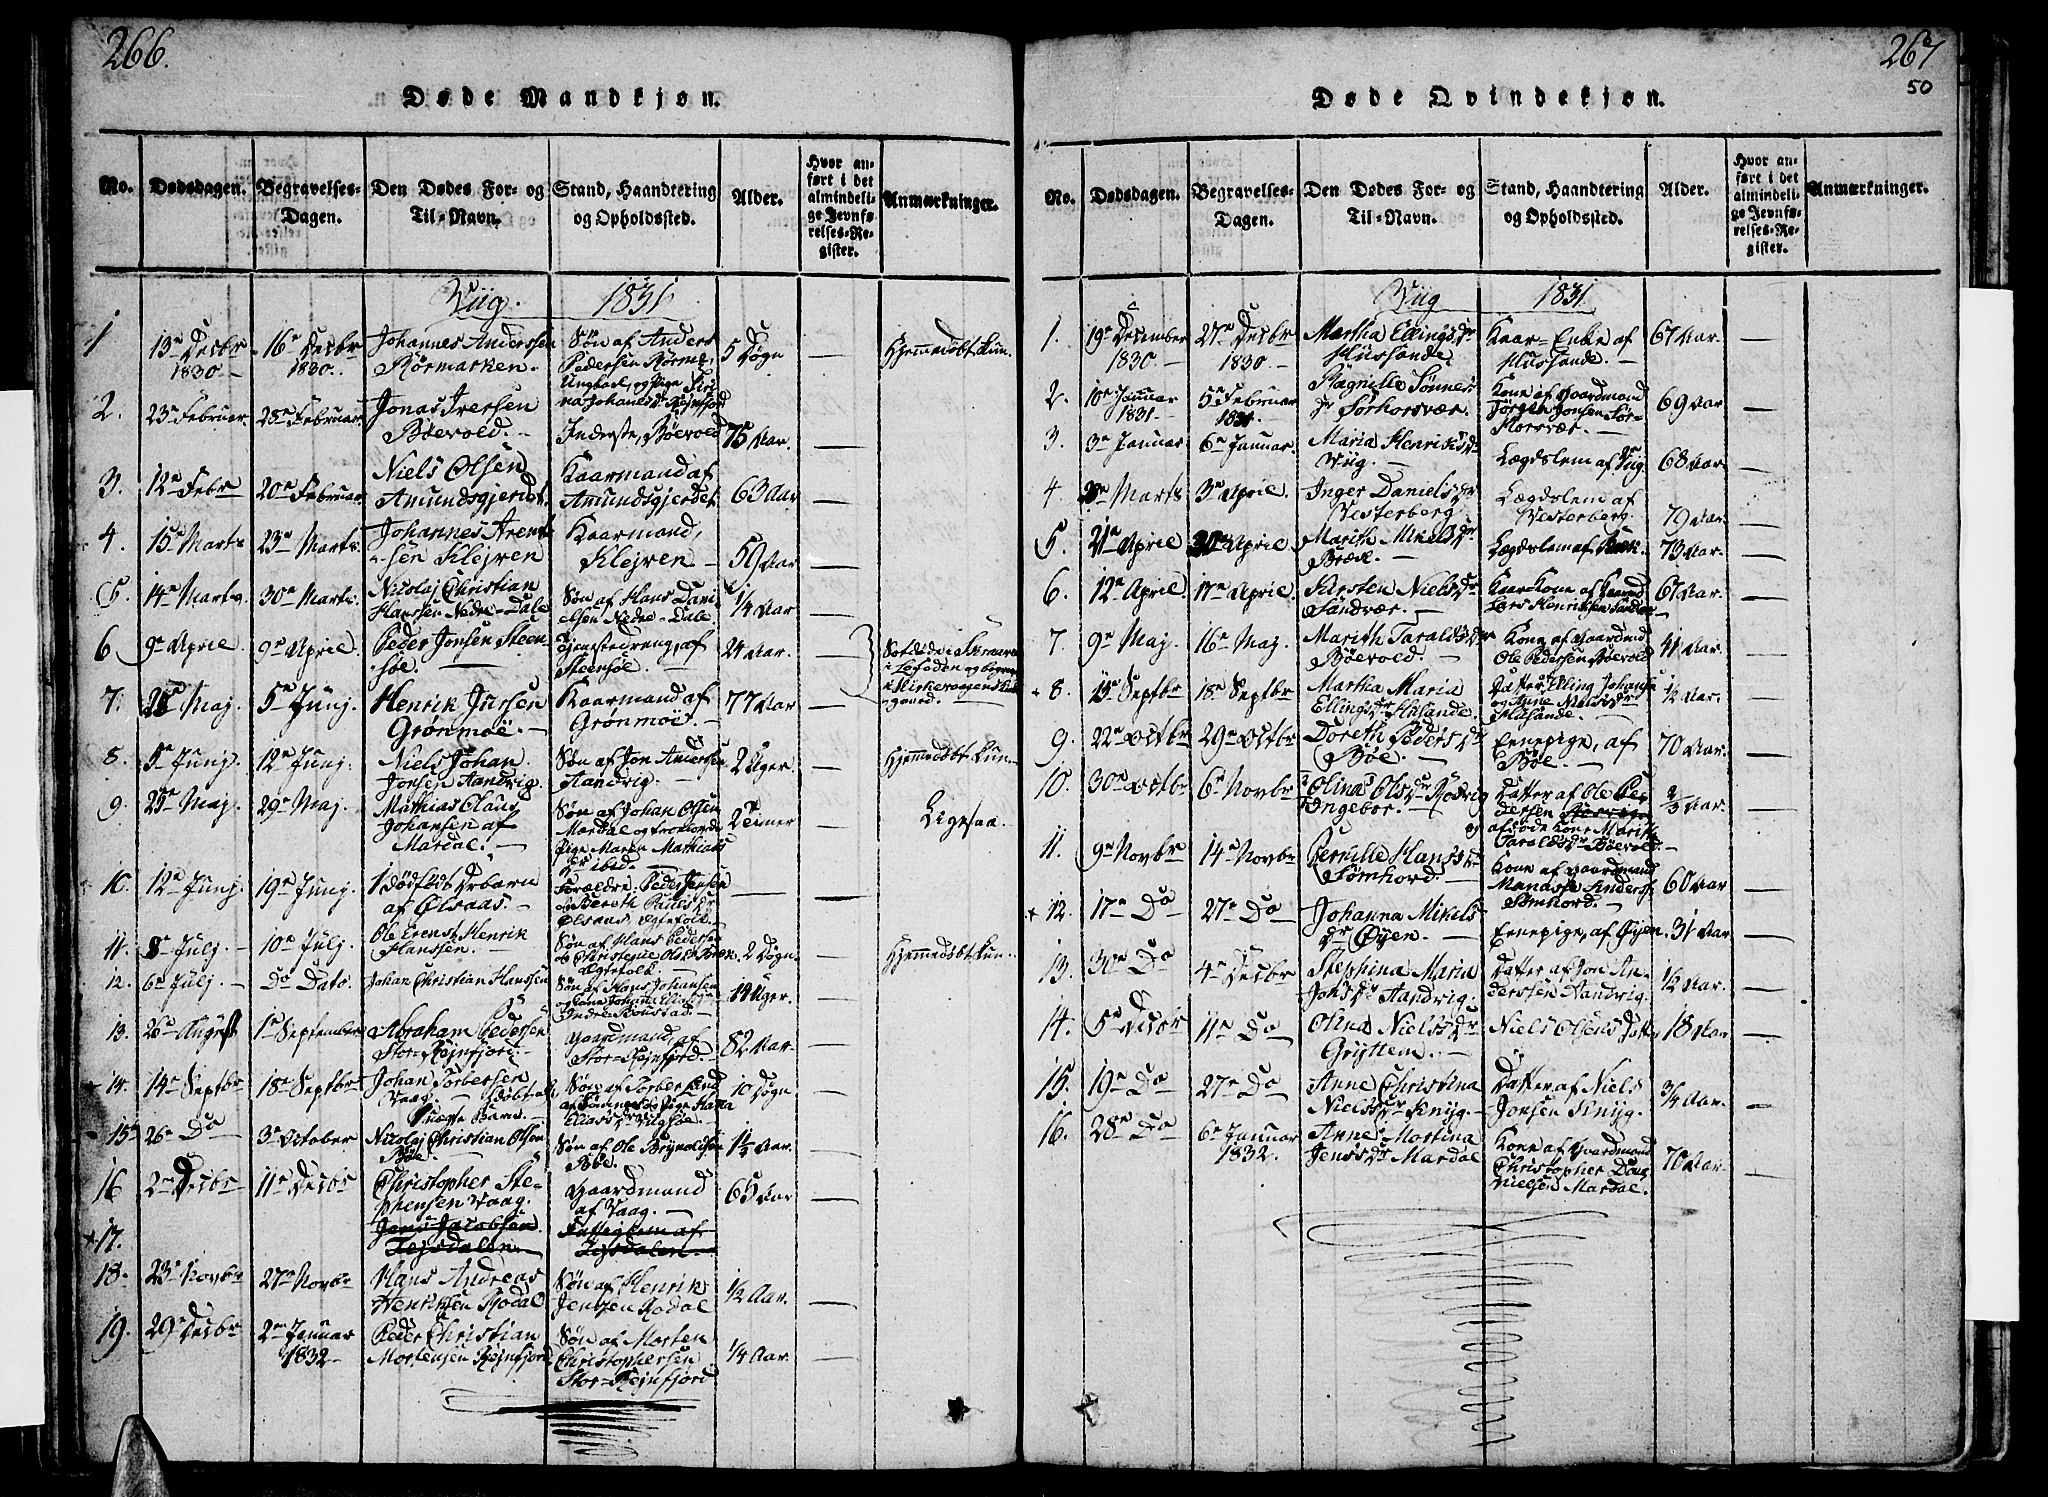 266.
Døde Mandkjøn.
No.
Dødsdagen.
Begravelses-
Dagen.
Den Dødes For- og
Til-Navn.
Stand, Haandtering
og Opholdssted.
Alder.
Hvor an-
ført i det
almindeli-
ge Jevnfø-
relses-Re-
gister.
Anmærkninger.
Viig. 1831
1 13de Decbr 1830 16de Decbr 1830 Johannes Anderssen Rørmarken. Søn af Anders Pedersen Rørmr. Ungkarl, og Pige Siri- na Johansdr Rejnfjord 5 Døgn — Hjemmedøbt kun.
2. 23de Februar 28de Februar Jonas Iversen Bøevold. Inderste, Bøevold 75 Aar. —
3. 12te Febr 20de Februar Niels Olsen Amundsgjerdet. Kaarmand af Amundsgjerdet 63 Aar —
4. 15de Marts 23de Marts Johannes Arent- sen Klejven Kaarmand, Klejven. 50 Aar —
5. 14de Marts 30de Marts. Nicolaj Christian Hanssen Nedre-Dale Søn af Hans Dani- elsen Nedre-Dale. 1/4 Aar —
6 9de April 9de April. Peder Jonsen Steen- søe. Tjenestedreng, af Steensøe. 24 Aar. — i Lofoden og
7. Maj. 5te Junj. Henrik Jversen Grønmøe. Kaarmand af Grønmoe. 77 Aar —
8. 5te Junj. 12te Junj. Niels Johan Jonsen Aandvig. Søn af Jon Andersen Aandvig. 2 Uger. — Hjemmedøbt kun
9. 29de Maj. Mathias Claus Johansen af Mardal. Søn af Johan Olsen Mardal og Pige Maren Mathias dr ibid. 2 Timer — Ligesaa.
10. 12te Junj 19de Junj. 1 dødfødt Drbarn af Ølsaas. Forældre: Peder Jensen Ølsaas Egtefolk. —
11. 8de Julj. 10de Julj. Ole Ernst Henrik Hanssen. Søn af Hans Pedersen Egtefolk. 2 Døgn. — Hjemmedøbt kun.
12. 6te Julj. Do Dato. Johan Christian Hanssen Søn af Hans Johansen Indre 14 Uger. —
13. 26de August 1ste September Abraham Pedersen Stor-Rejnfjord. Gaardmand, af Stor-Rejnfjord. 82 Aar. —
14. 14de Septbr 18de Septbr Johan Torbersen Vaag. Søn af Torber 10 Døgn. —
15 26de Do 3de October Nicolaj Christian Olsen Bøe. Søn af Ole Brynildsen Bøe. 1 1/2 Aar. —
16 2den Decbr 11te Decbr Christopher Ste- phensen Vaag. Gaardmand af Vaag. 65 Aar —
17. Jens Jacobsen Tejsdalen Fattiglem af Tejsdalen
18. 23de Novbr 27de Novbr Hans Andreas Henriksen Rødal Søn af Henrik Jentsen Rødal 1/2 Aar. —
19. 29de Decbr 2den Januar 1832 Peder Christian Mortensen Rejnfjord Søn af Morten Christophersen Stor-Rejnfjord 1/4 Aar. —
267
50
Døde Qvindekjøn.
No.
Dødsdagen.
Begravelses-
Dagen.
Den Dødes For- og
Til-Navn.
Stand, Haandtering
og Opholdssted.
Alder.
Hvor an-
ført i det
almindeli-
ge Jevnfø-
relses-Re-
gister.
Anmærkninger.
Viig 1831
1. 19de December 1830. 27de Decbr 1830 Martha Ellingsdr Hussande. Kaar-Enke af Hussande. 67 Aar. —
2. 10de Januar 1831. 5te Februar 1831. Ragnille Sønnes dr Sørhorsvær. Kone af Gaardmand Jørgen Jonsen Sør- Horsvær. 69 Aar —
3. 3de Januar 6te Januar. Maria Henriksdr Viig. Lægdslem af Viig. 68 Aar —
4. Marts 3de April. Inger Danielsdr Vesterberg Lægdslem af Vesterberg. 79 Aar. —
5. 21de April 30de April. Marith Mikelsdr Bræk. Lægdslem af Bræk. 73 Aar. —
6. 12te April. 17de April. Kirsten Nielsdr Sandvær. Kaarkone af Lars Henriksen Sandvær 67 Aar. —
7. 9de Maj. 16de Maj. Marith Taraldsdr Bøevold. Kone af Gaardmd Ole Pedersen Bøevold 41 Aar. —
8. Septbr 18de Septbr Martha Maria Ellingsdr Husande. Datter af Elling Johans og Anne Nielsdr Hussande. 1/2 Aar. —
9. 22de Octbr 29de Octbr Doreth Pedersdr Bøe. Ernepige, af Bøe. 70 Aar. —
10. 30de Octbr 6te Novbr Olina Olsdr Rødvig Ingebor. Datter af Ole Pe- dersen og afdøde Kone Marith Taraldsdr Bøevold. 2/3 Aar. —
11. 9de Novbr 14de Novbr Pernille Hansdr Tømhord. Kone af Gaardmand Manasse Anders. Tømhord. 60 Aar —
12. 17de Do 27de Do Johanna Mikels dr Øyen. Ernepige, af Øyen. 31 Aar. —
13. 30de Do 4de Decbr. Stephina Maria Jonsdr Aandvig. Datter af Jon An- derssen Aandvig. 1/2 Aar. —
14. 5te Decbr 11te Do Olina Nielsdr Gryttem. Niels Olsens Datter 18 Aar. —
15. 19de Do 27de Do Anne Christina Nielsdr Knyg. Datter af Niels Jonsen Knyg. 3/4 Aar. —
16. 28de Do 6te Januar 1832. Anne Mortina Jensdr Mardal Kone af Gaardmand Christopher Nielsen Mardal. 70 Aar. —